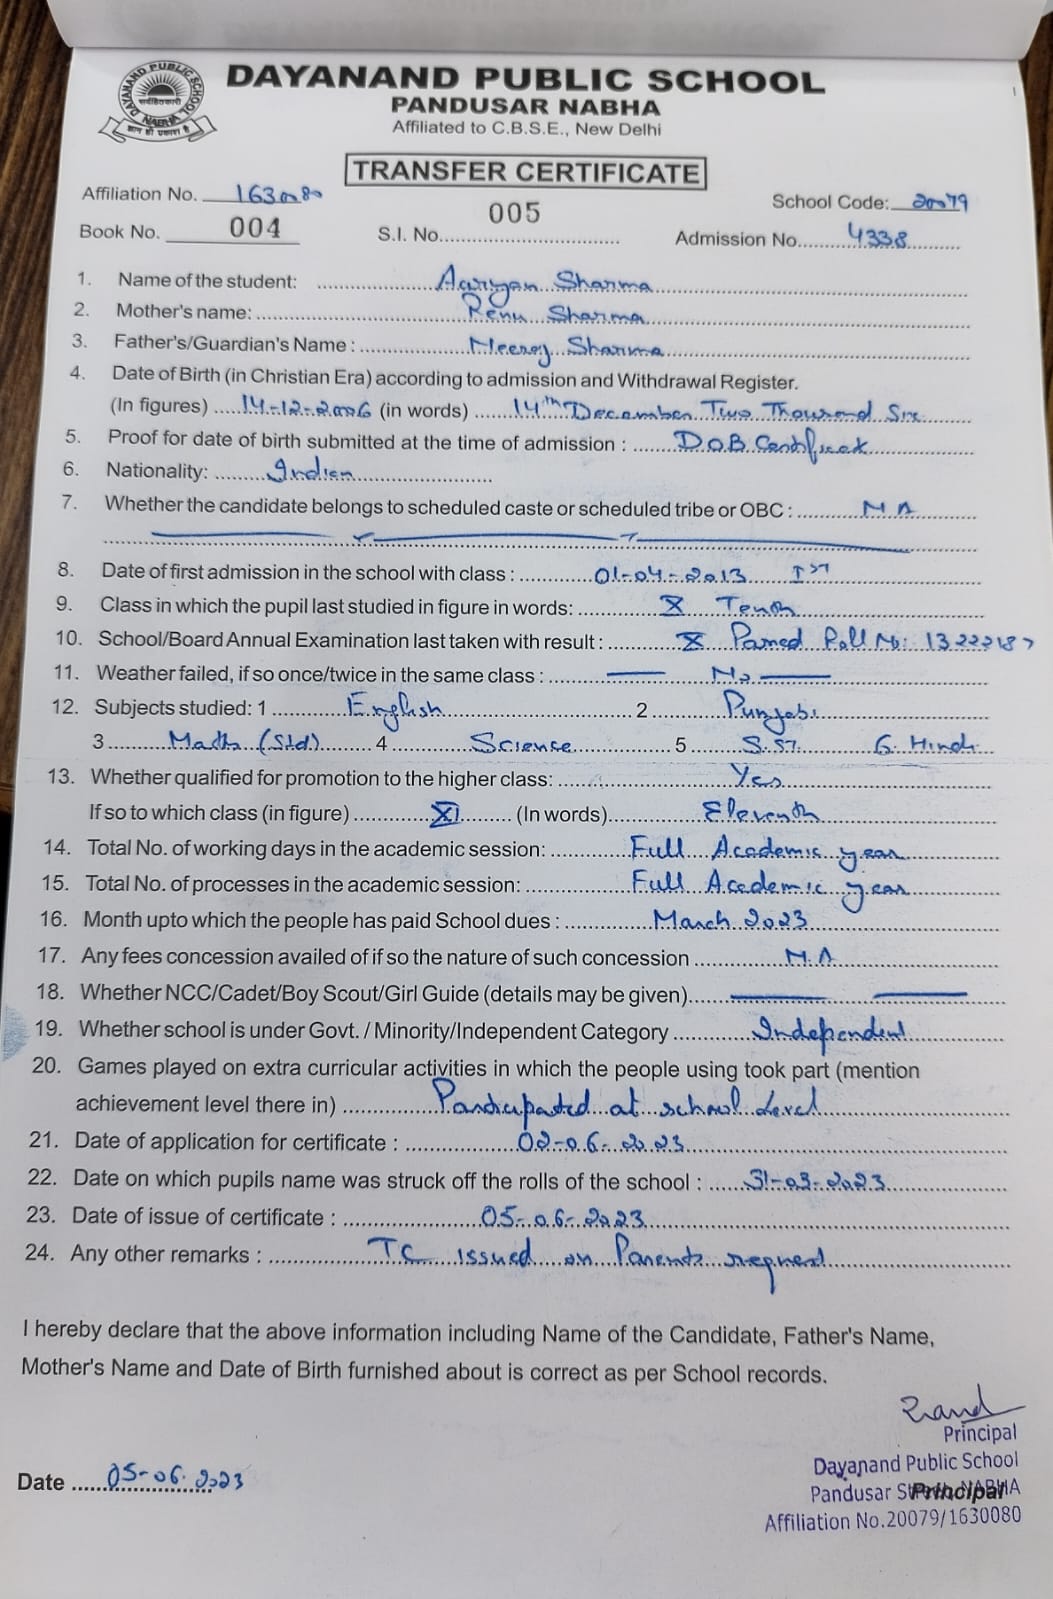 DAYANAND PUBLIC SCHOOL NABHA
सर्वहितकारी
ज्ञान ही प्रकाश है
DAYANAND PUBLIC SCHOOL
PANDUSAR NABHA
Affiliated to C.B.S.E., New Delhi
TRANSFER CERTIFICATE
Affiliation No. 1630080 School Code: 20079
Book No. 004 S.I. No. 005 Admission No. 4338
1. Name of the student: Aaryan Sharma
2. Mother's name: Renu Sharma
3. Father's/Guardian's Name : Neeraj Sharma
4. Date of Birth (in Christian Era) according to admission and Withdrawal Register.
(In figures) 14-12-2006 (in words) 14th December Two Thousand Six
5. Proof for date of birth submitted at the time of admission : D.O.B. Certificate
6. Nationality: Indian
7. Whether the candidate belongs to scheduled caste or scheduled tribe or OBC : N A
8. Date of first admission in the school with class : 01-04-2013 Ist
9. Class in which the pupil last studied in figure in words: X Tenth
10. School/Board Annual Examination last taken with result : X Passed Roll No: 13222187
11. Weather failed, if so once/twice in the same class : — No —
12. Subjects studied: 1 English 2 Punjabi
3 Maths (Std) 4 Science 5 S.St. 6. Hindi
13. Whether qualified for promotion to the higher class: Yes
If so to which class (in figure) XI (In words) Eleventh
14. Total No. of working days in the academic session: Full Academic year
15. Total No. of processes in the academic session: Full Academic year
16. Month upto which the people has paid School dues : March 2023
17. Any fees concession availed of if so the nature of such concession N.A
18. Whether NCC/Cadet/Boy Scout/Girl Guide (details may be given) — —
19. Whether school is under Govt. / Minority/Independent Category Independent
20. Games played on extra curricular activities in which the people using took part (mention
achievement level there in) Participated at school Level
21. Date of application for certificate : 02-06-2023
22. Date on which pupils name was struck off the rolls of the school : 31-03-2023
23. Date of issue of certificate : 05-06-2023
24. Any other remarks : TC issued on Parents request
I hereby declare that the above information including Name of the Candidate, Father's Name,
Mother's Name and Date of Birth furnished about is correct as per School records.
Principal
Dayanand Public School
Date 05-06-2023
Pandusar NABHA
Principal
Affiliation No.20079/1630080